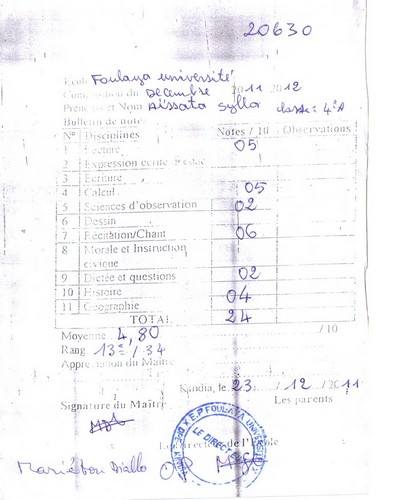 20630
Ecole Foulaya université
Composition du Decembre 2011 2012
Prénoms et Nom Aïssata Sylla classe: 4e A
Bulletin de notes
N° Disciplines Notes / 10 Observations
1 Lecture 05
2 Expression écrite
3 Ecriture
4 Calcul 05
5 Sciences d'observation 02
6 Dessin
7 Récitation/Chant 06
8 Morale et Instruction
civique
9 Dictée et questions 02
10 Histoire 04
11 Géographie
TOTAL 24
Moyenne 4,80 /10
Rang 13e / 34
Appréciation du Maître
Kindia, le 23 / 12 / 2011
Signature du Maître Les parents
E.P FOULAYA UNIVERSITE
LE DIRECTEUR
Le Directeur de l'Ecole
Mariétou Diallo